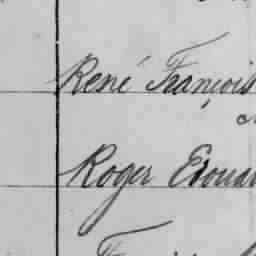 René François
Roger Edouar